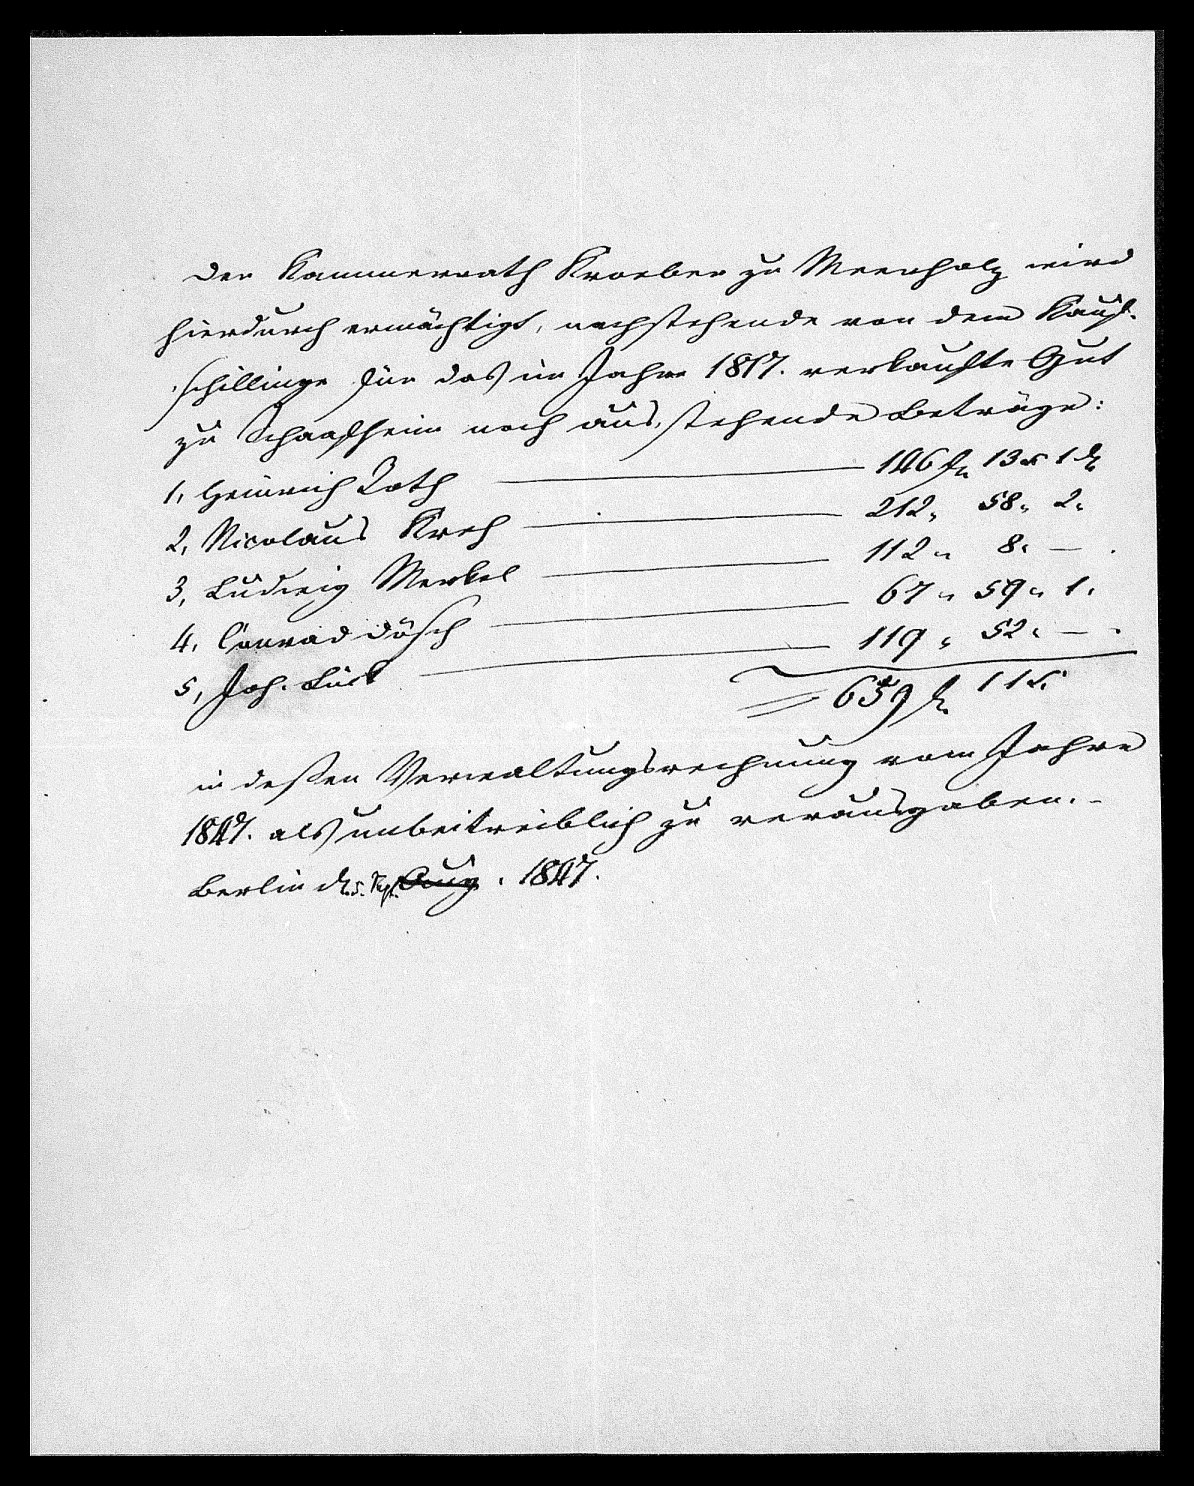 Der Kammerrath Kroeber zu Meerholz wird
hierdurch ermächtigt, nachstehende von dem Kauf-
schillinge für das im Jahre 1817. verkaufte Gut
zu Schaafheim noch ausstehende Beträge:
1, Heinrich Roth 146 fl 13 x 1 d
2, Nicolaus Kreh 212 „ 58 „ 2 „
3, Ludwig Merkel 112 „ 8 „ —
4, Conrad Dösch 67 „ 59 „ 1 „
5, Joh. Lück 119 „ 52 „ —
659 fl 11 x.
in deßen Verwaltungsrechnung vom Jahre
1847. als unbeitreiblich zu verausgaben.-
Berlin d. 5. Sept. Aug. 1847.